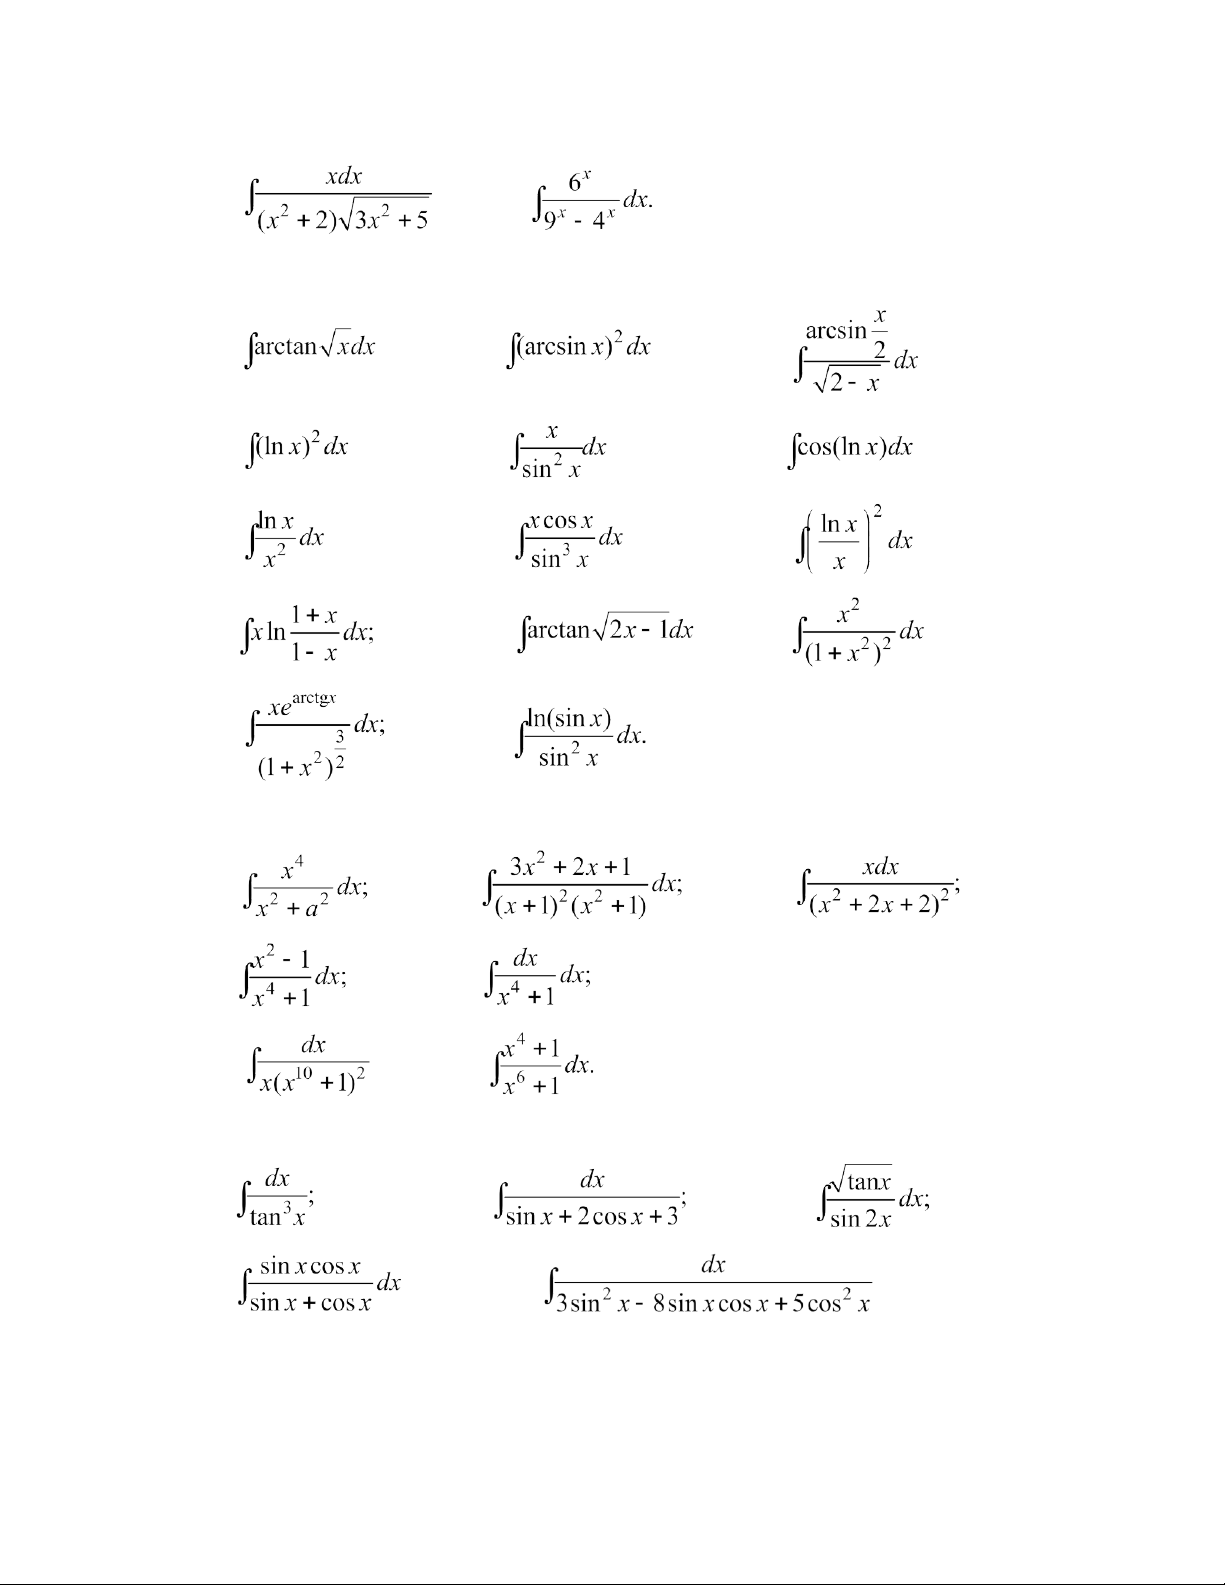 ∫ xdx / ((x² + 2)√(3x² + 5)) ∫ 6ˣ / (9ˣ - 4ˣ) dx.
∫arctan√x dx ∫(arcsin x)² dx ∫ (arcsin x/2) / √(2 - x) dx
∫(ln x)² dx ∫ x / sin² x dx ∫cos(ln x)dx
∫ ln x / x² dx ∫ x cos x / sin³ x dx ∫ (ln x / x)² dx
∫x ln (1 + x)/(1 - x) dx; ∫arctan√(2x - 1)dx ∫ x² / (1 + x²)² dx
∫ xe^(arctgx) / (1 + x²)^(3/2) dx; ∫ ln(sin x) / sin² x dx.
∫ x⁴ / (x² + a²) dx; ∫ (3x² + 2x + 1) / ((x + 1)² (x² + 1)) dx; ∫ xdx / (x² + 2x + 2)²;
∫ (x² - 1) / (x⁴ + 1) dx; ∫ dx / (x⁴ + 1) dx;
∫ dx / (x(x¹⁰ + 1)²) ∫ (x⁴ + 1) / (x⁶ + 1) dx.
∫ dx / tan³ x; ∫ dx / (sin x + 2 cos x + 3); ∫ √(tanx) / sin 2x dx;
∫ sin x cos x / (sin x + cos x) dx ∫ dx / (3 sin² x - 8 sin x cos x + 5 cos² x)